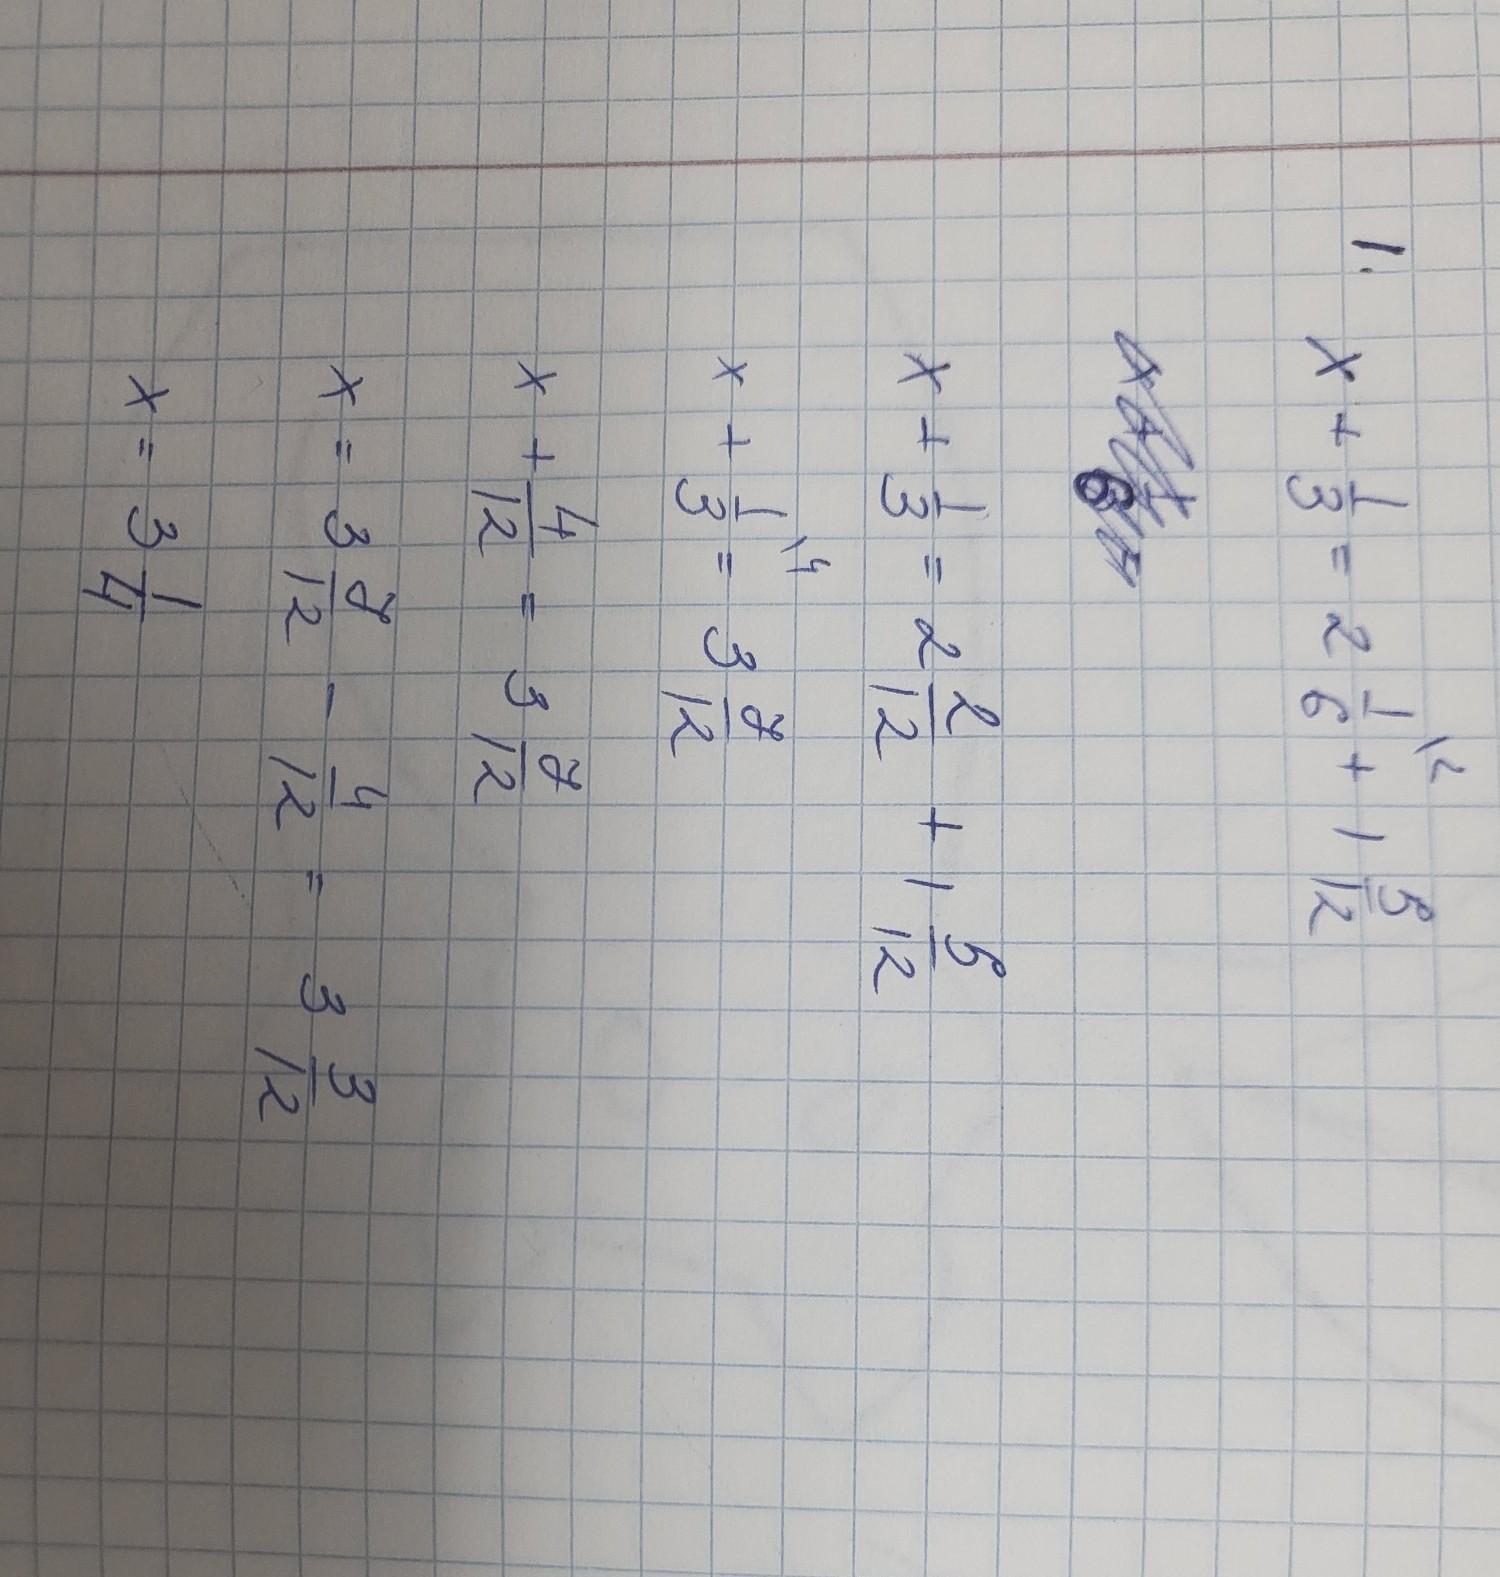 1. x + 1/3 = 2 1/6 \2 + 1 5/12
x + 1/3 = 2 2/12 + 1 5/12
x + 1/3 \4 = 3 7/12
x + 4/12 = 3 7/12
x = 3 7/12 - 4/12 = 3 3/12
x = 3 1/4